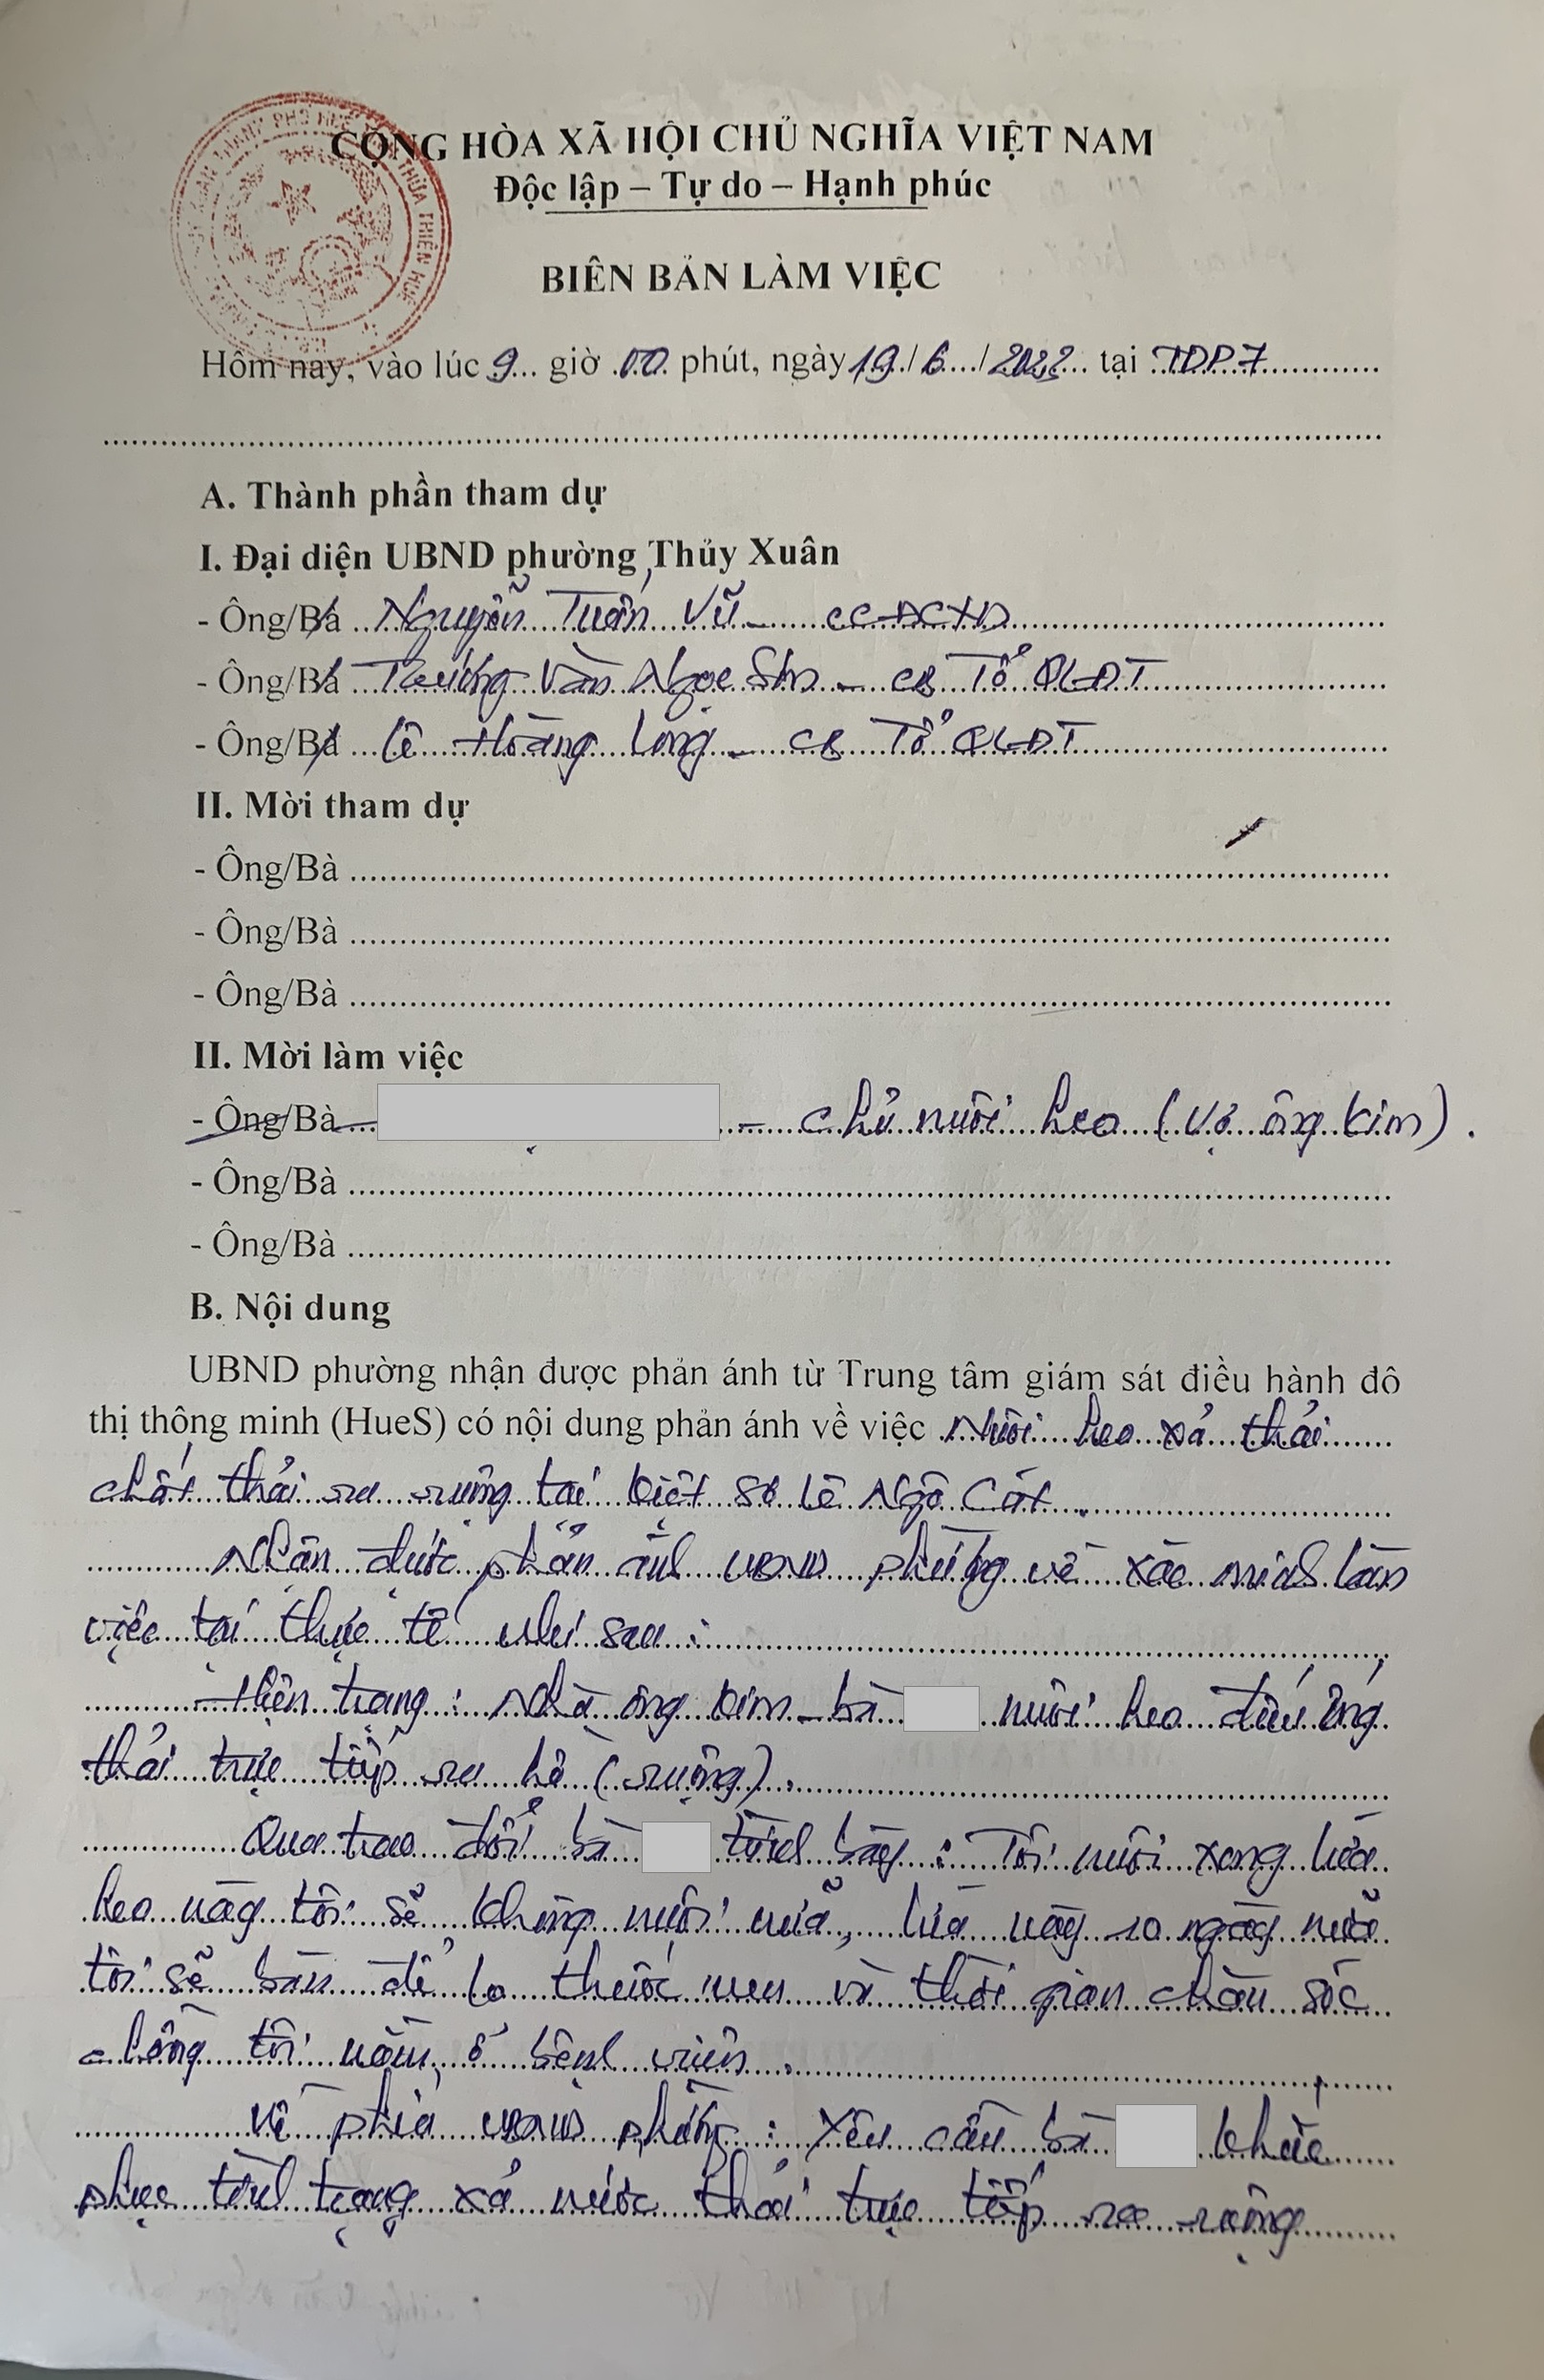 CỘNG HÒA XÃ HỘI CHỦ NGHĨA VIỆT NAM
Độc lập – Tự do – Hạnh phúc
BIÊN BẢN LÀM VIỆC
Hôm nay, vào lúc 9 giờ 00 phút, ngày 19/6/2022 tại TDP7
A. Thành phần tham dự
I. Đại diện UBND phường Thủy Xuân
- Ông/Bà Nguyễn Tuấn Vũ - CC ĐCXD
- Ông/Bà Trương Văn Ngọc Sơn - CB Tổ QLĐT
- Ông/Bà Lê Hoàng Long - CB Tổ QLĐT
II. Mời tham dự
- Ông/Bà
- Ông/Bà
- Ông/Bà
II. Mời làm việc
- Ông/Bà - chủ nuôi heo (vợ ông Kim).
- Ông/Bà
- Ông/Bà
B. Nội dung
UBND phường nhận được phản ánh từ Trung tâm giám sát điều hành đô
thị thông minh (HueS) có nội dung phản ánh về việc Nuôi heo xả thải
chất thải ra ruộng tại kiệt 80 Lê Ngô Cát.
Nhận được phản ánh UBND phường về xác minh làm
việc tại thực tế như sau:
Hiện trạng: Nhà ông Kim - bà nuôi heo đấu ống
thải trực tiếp ra hồ (ruộng).
Qua trao đổi bà trình bày: Tôi nuôi xong lứa
heo này tôi sẽ không nuôi nữa, lứa này 10 ngày nữa
tôi sẽ bán để lo thuốc men và thời gian chăm sóc
chồng tôi nằm ở bệnh viện.
Về phía UBND phường: Yêu cầu bà khắc
phục tình trạng xả nước thải trực tiếp ra ruộng